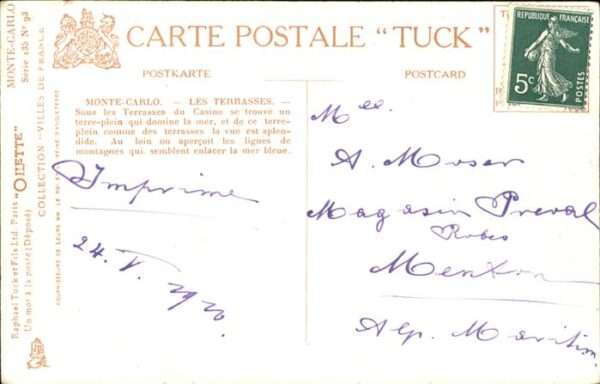 CARTE POSTALE “TUCK”
POSTKARTE
POSTCARD
REPUBLIQUE FRANÇAISE
5c
POSTES
MONTE-CARLO. — LES TERRASSES. —
Sous les Terrasses du Casino se trouve un
terre-plein qui domine la mer, et de ce terre-
plein comme des terrasses la vue est splen-
dide. Au loin on aperçoit les lignes de
montagnes qui semblent enlacer la mer bleue.
Imprime
24. V. 1910.
Mlle.
A. Moser
Magasin Preval
Robes
Menton
Alp. Maritim
MONTE-CARLO
Série 135 No 98
COLLECTION - VILLES DE FRANCE
"OILETTE"
Raphael Tuck et Fils Ltd. Paris
Un mot à la poste (Déposé)